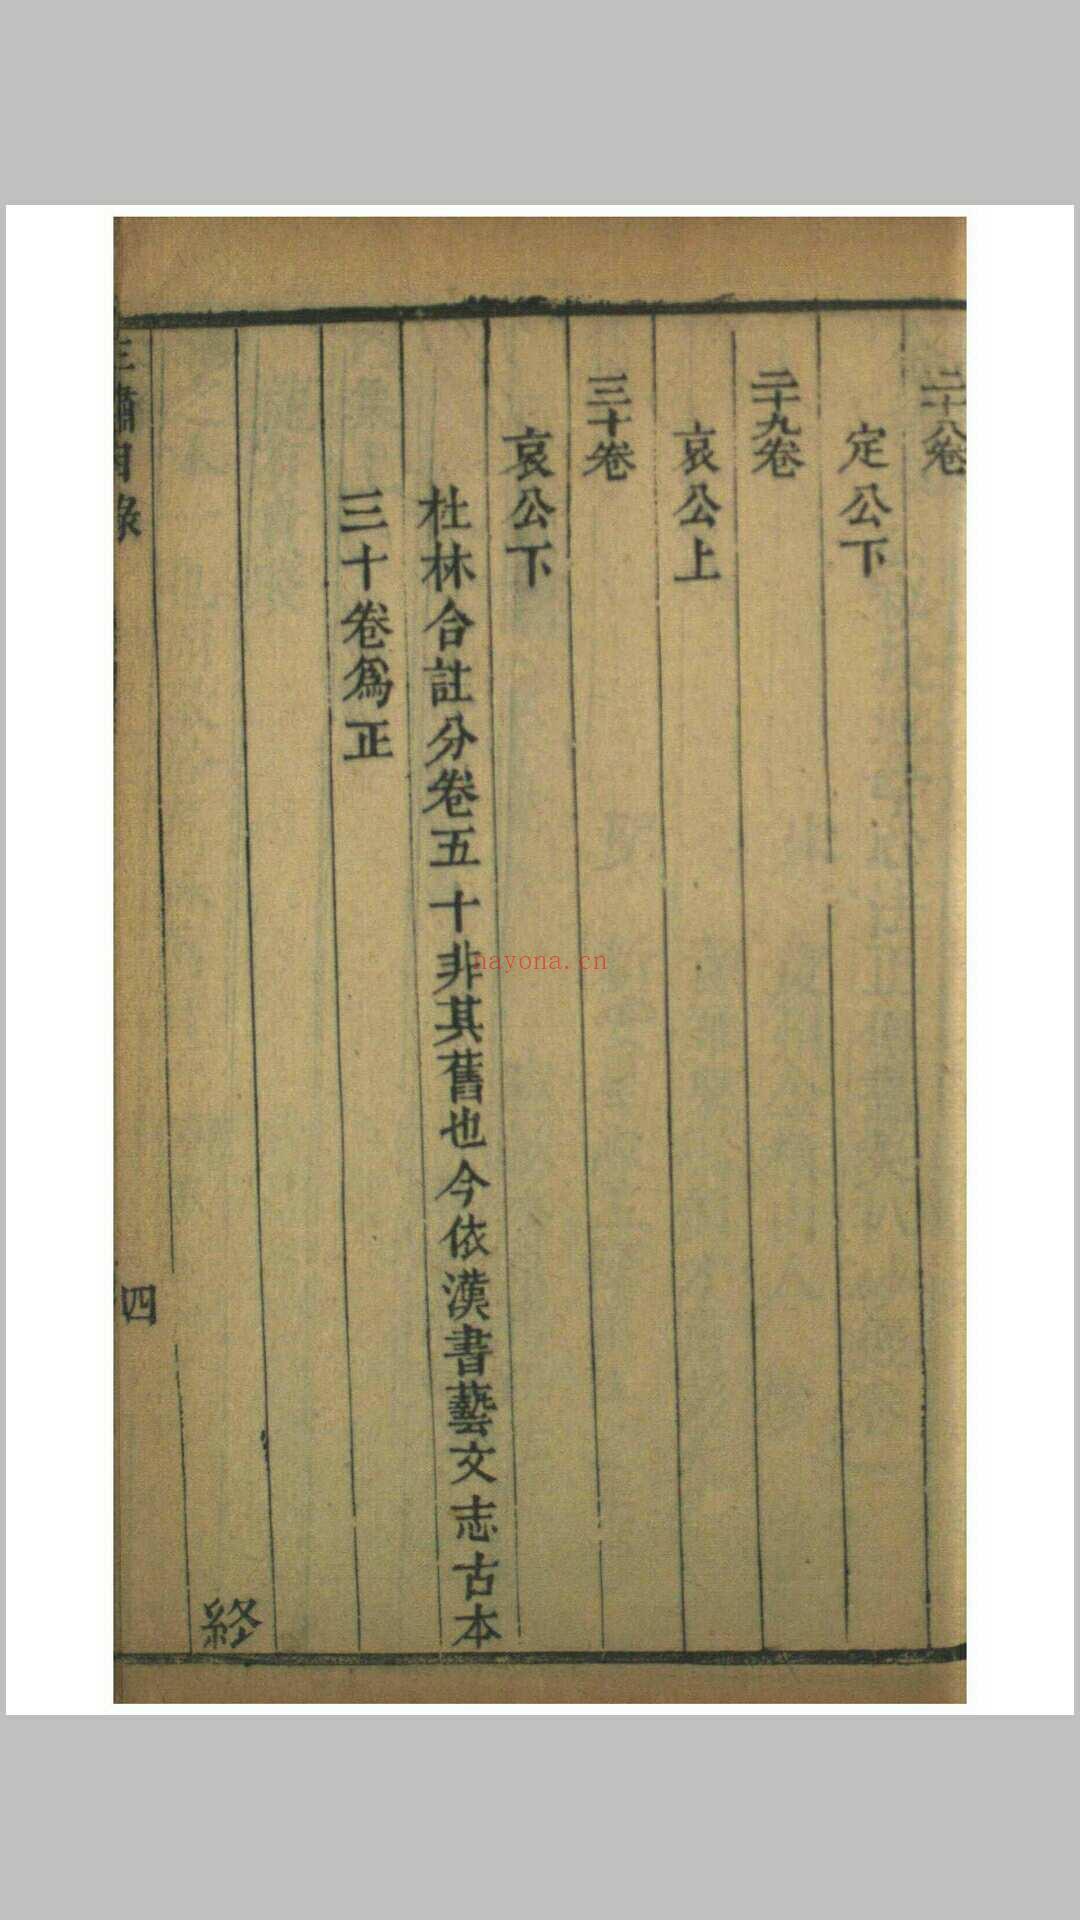 二十八卷
定公下
二十九卷
哀公上
三十卷
哀公下
杜林合註分卷五十非其舊也今依漢書藝文志古本
三十卷爲正
経
目錄
四
nayona.cn